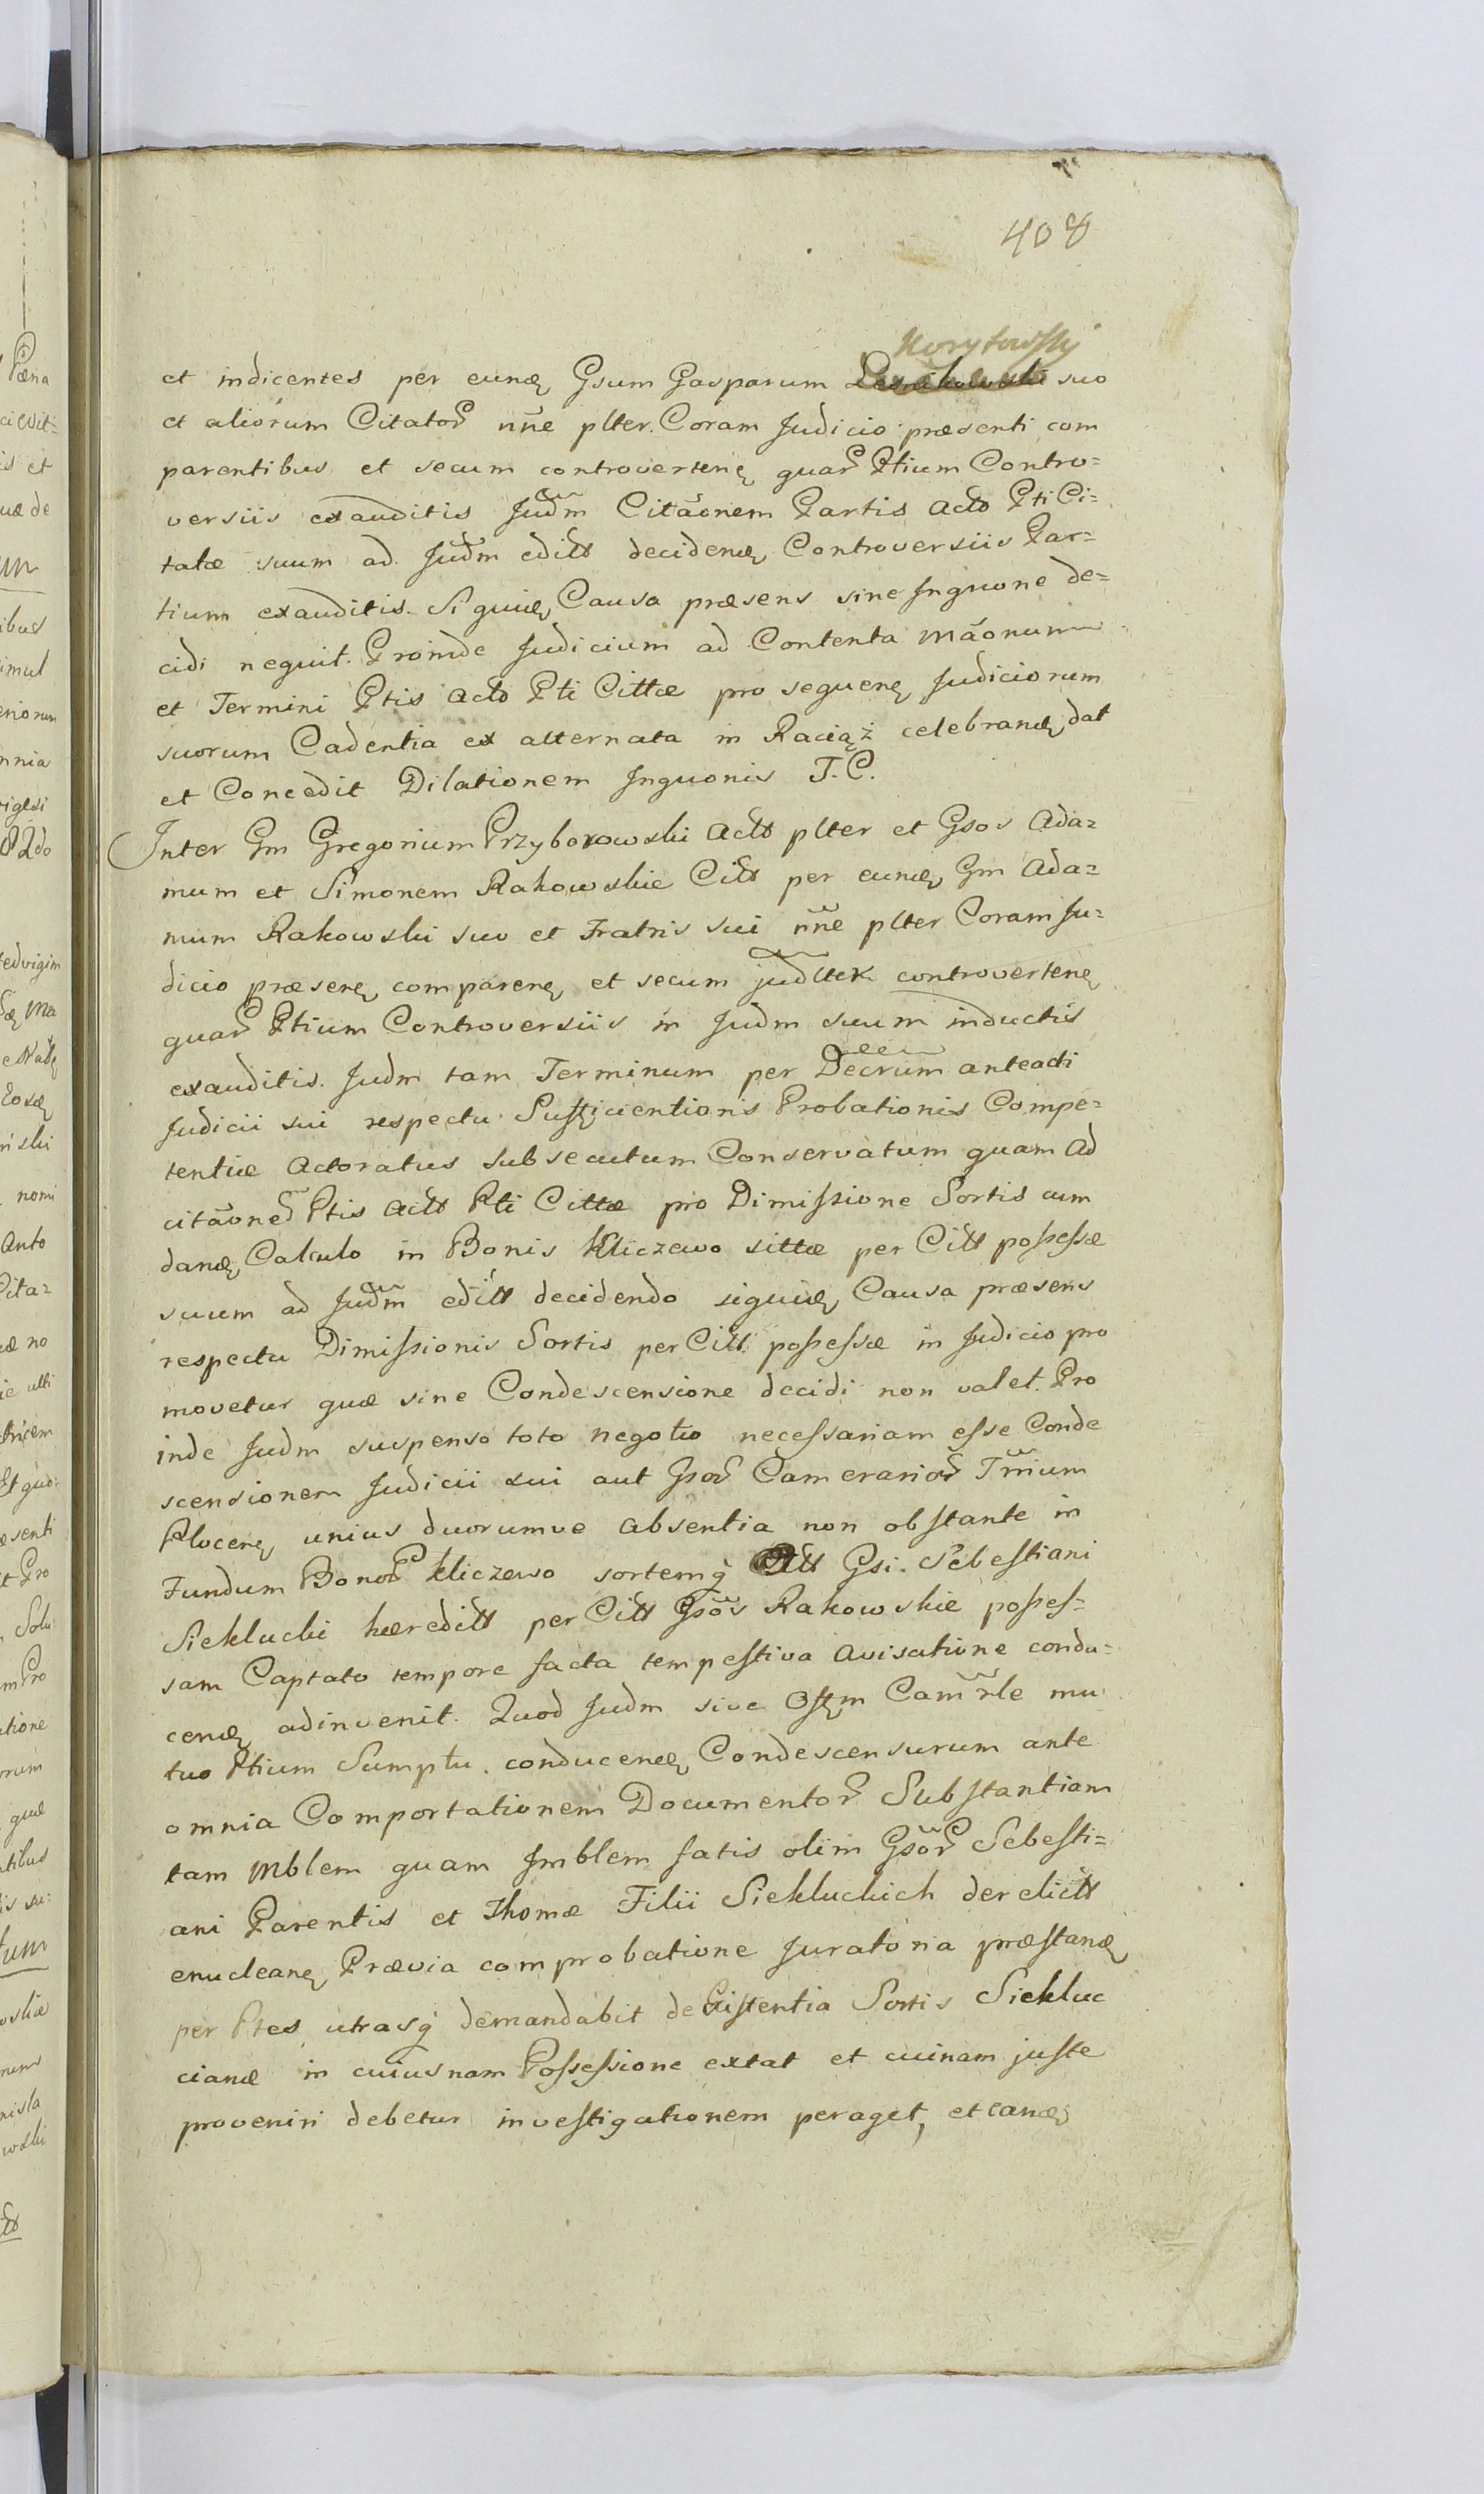 408
Korytowski
et indicentes per eunд Gsum Gasparum suo
et aliorum Citator nne plter. Coram Judicio praesenti com
parentibus et secum controverten quar Ptium Contro=
versiis exauditis Judm Citãonem Partis Acto Pti Ci=
tatæ suum ad Judm editt decidend Controversiis Par=
tium exauditis. Siquid Causa præsens sine Inquone de=
cidi nequit. Proinde Judicium ad Contenta Mãonum
et Termini Ptis Acto Pti Cittæ pro sequen Judiciorum
suorum Cadentia ex alternata in Raciąż celebrand dat
et Concedit Dilationem Inquonis T.C.
Inter Gm Gregorium Przyborowski Actt plter et Gsos Ada=
mum et Simonem Rakowskie Citt per eund Gm Ada=
mum Rakowski suo et Fratris sui nne plter Coram Ju=
dicio præsen comparen et secum judlter controverten
quar Ptium Controversiis in Judm suum inductis
exauditis. Judm tam Terminum per Decrum anteacti
Judicii sui respectu Sufficientioris Probationis Compe=
tentiæ Actoratus subsecutum Conservatum quam Ad
citãone Ptis Actt Pti Cittæ pro Dimissione Sortis cum
dand Calculo in Bonis Kliczewo sittæ per Citt possessæ
suum ad Judm editt decidendo siquid Causa præsens
respectu Dimissionis Sortis per Citt. possessæ in Judicio pro
movetur quæ sine Condescensione decidi non valet. Pro
inde Judm suspenso toto negotio necessariam esse Conde
scensionem Judicii sui aut Gsor Camerarior Trium
Plocen unius duorumve absentia non obstante in
Fundum Bonor Kliczewo sortemq Gsi. Sebestiani
Siekłucki hæreditt per Citt Gsos Rakowskie posses=
sam Captato tempore facta tempestiva Avisatione condu=
cend adinvenit. Quod Judm sive Offm Camrle mu
tuo Ptium Sumptu. conducend Condescensurum ante
omnia Comportationem Documentor Substantiam
tam Mblem quam Imblem fatis olim Gsor Sebesti=
ani Parentis et Thomæ Filii Siekluckich derelictt
enuclean Prævia comprobatione Juratoria præstand
per Ptes utrasq demandabit de Existentia Sortis Siekluc
cianæ in cuiusnam Possessione extat et cuinam juste
proveniri debetur investigationem peraget, et eand